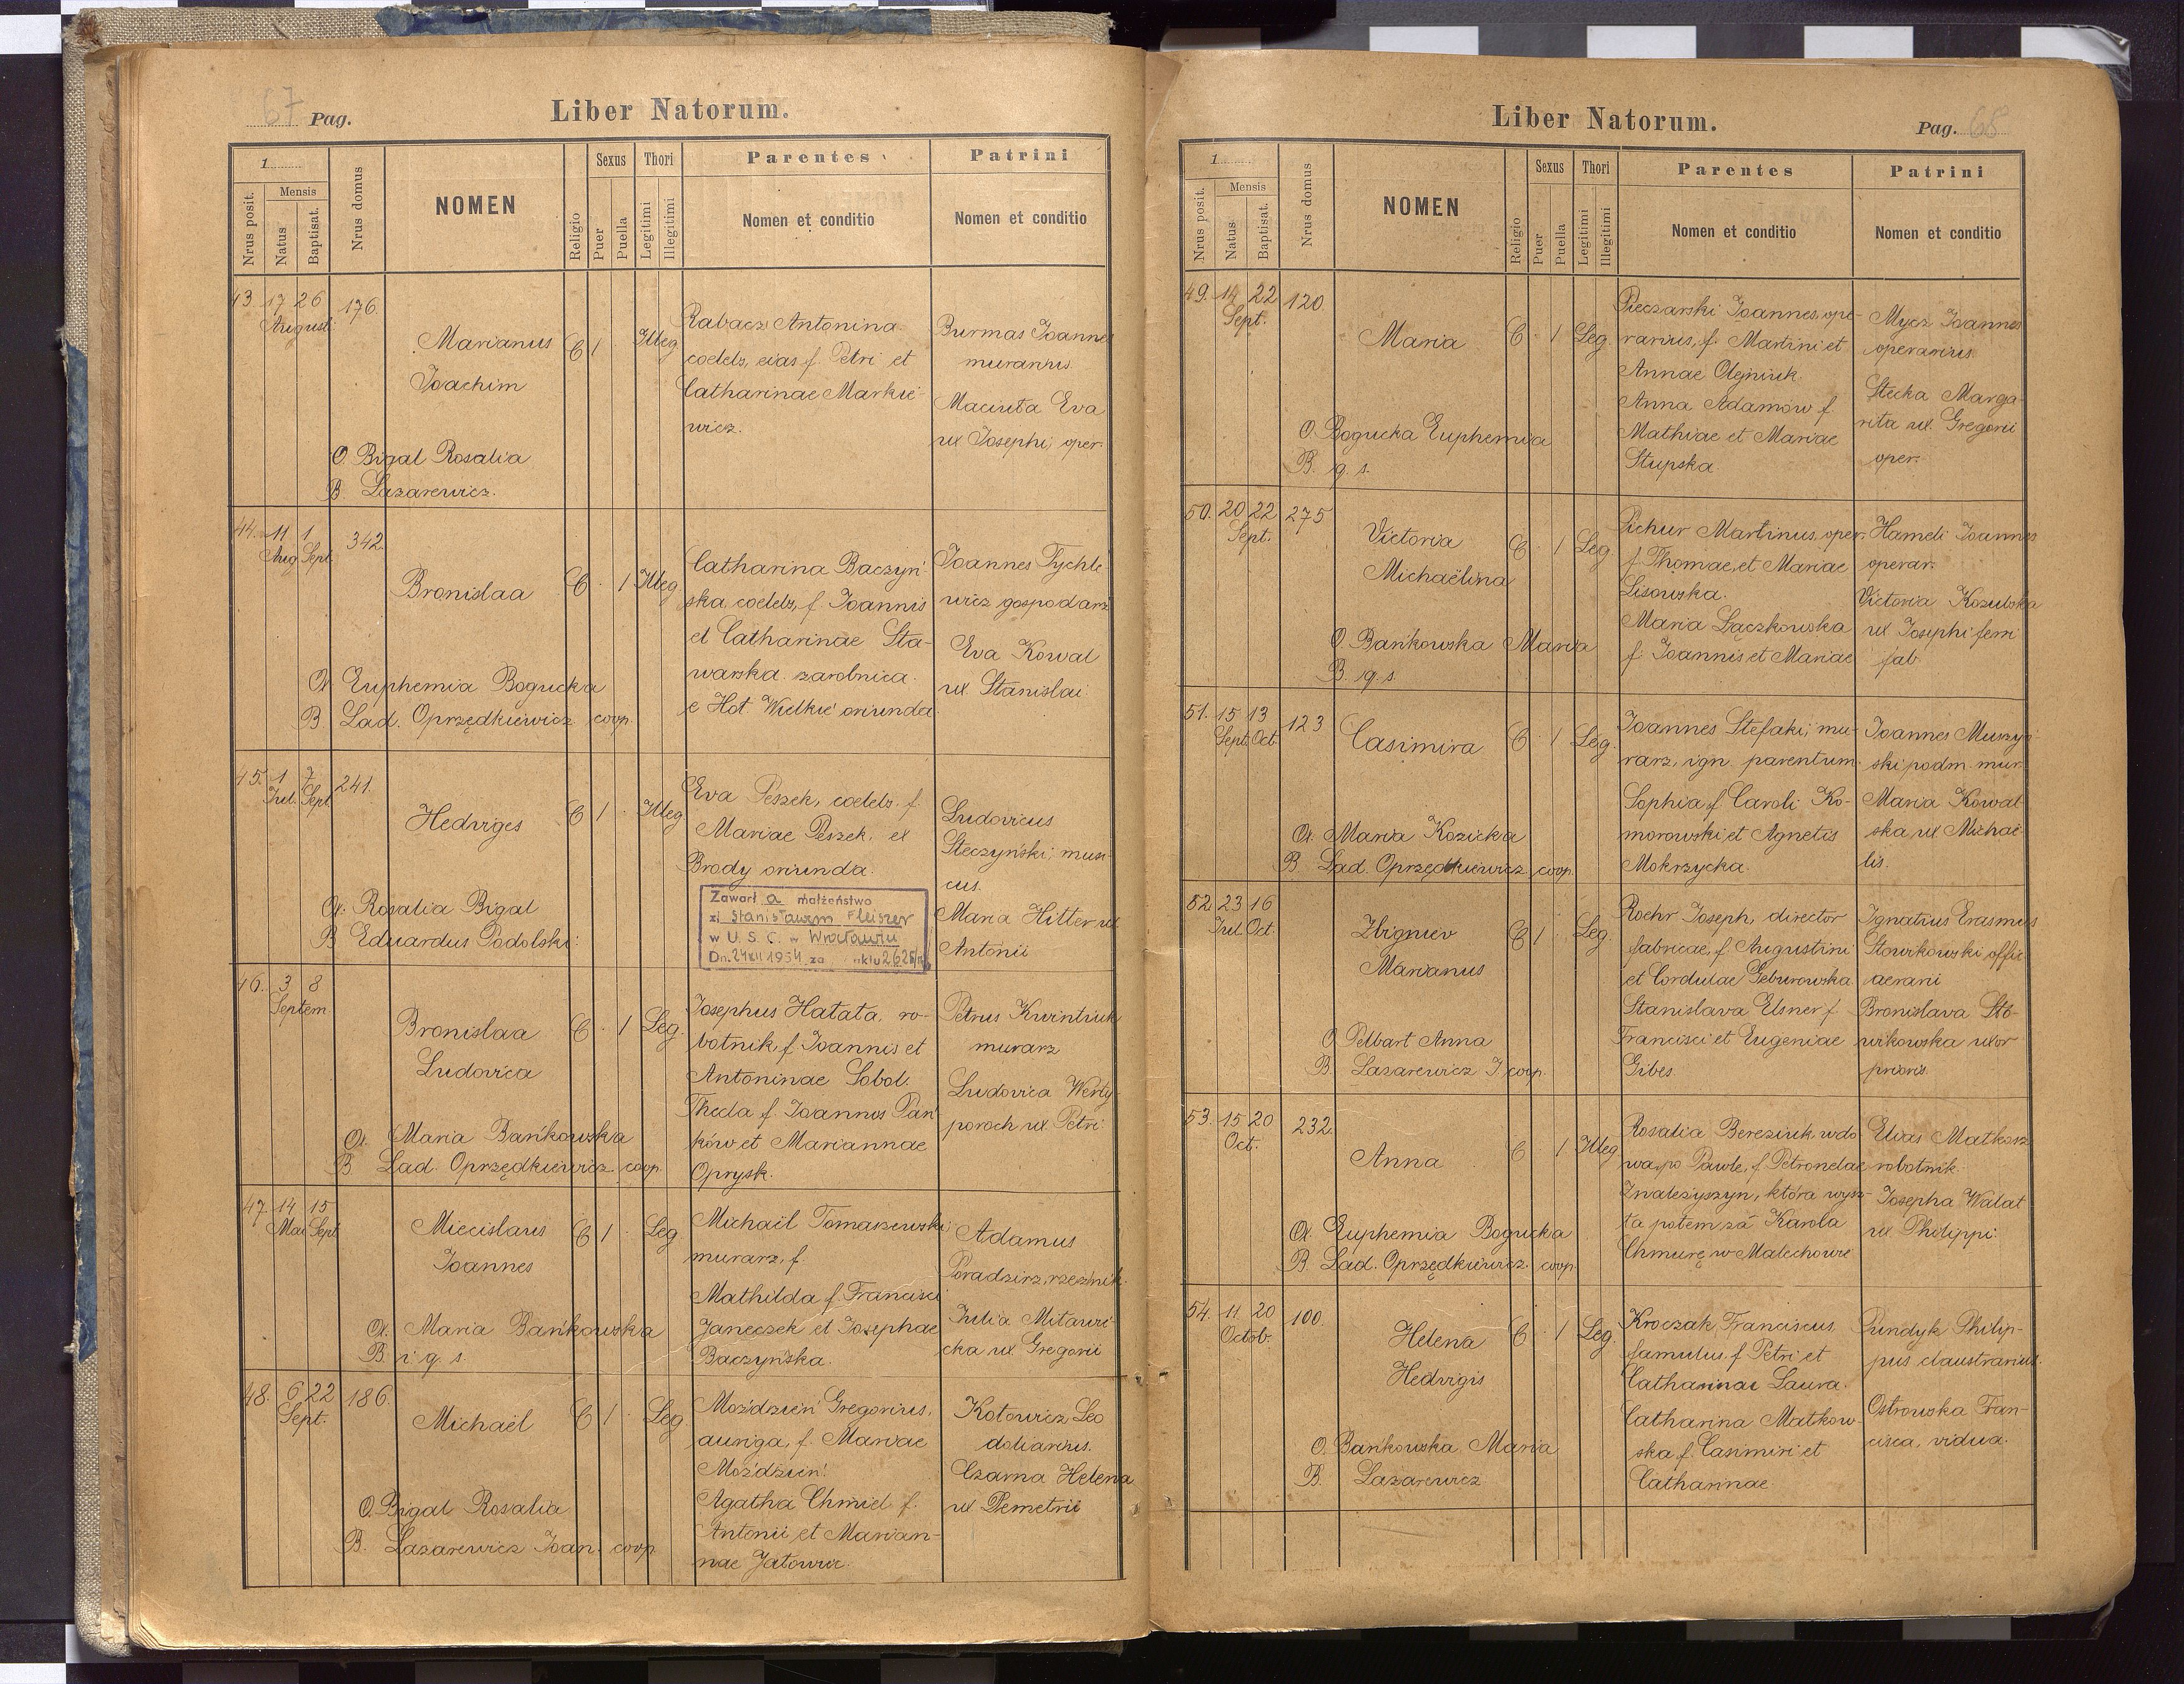 67 Pag.
Liber Natorum.
1
Nrus posit.
Mensis
Natus
Baptisat.
Nrus domus
NOMEN
Religio
Sexus
Puer
Puella
Thori
Legitimi
Illegitimi
Parentes
Nomen et conditio
Patrini
Nomen et conditio
43. 17 26 176.
Augusti
Marianus C 1 Illeg
Joachim
O. Bigal Rosalia
B. Lazarewicz.
Rabacz Antonina
coelebs, eias f. Petri et
Catharinae Markie-
wicz.
Burmas Joannes
murarius
Maciuta Eva
ux Josephi, oper.
44. 11 1 342.
Aug Sept.
Bronislaa C 1 Illeg
O. Euphemia Bogucka
B. Lad. Oprzędkiewicz coop.
Catharina Baczyń-
ska, coelebs, f. Joannis
et Catharinae Sta-
warska zarobnica
e Hot. Wielkie oriunda.
Joannes Tychle-
wicz gospodarz
Eva Kowal
ux Stanislai
45. 1 7 241.
Jul. Sept
Hedviges C 1 Illeg
Ob. Rosalia Bigal
B Eduardus Podolski
Eva Peszek, coelebs. f.
Mariae Peszek, ex
Brody oriunda.
Zawarł a małżeństwo
z Stanisławem Fleiszer
w U. S. C. w Wrocławiu
Dn. 24 XII 1954 za aktu 2625
Ludovicus
Steczyński, musi-
cus.
Maria Hitter ux
Antonii
46. 3 8
Septem
Bronislaa C 1 Leg.
Ludovica
Ob. Maria Bańkowska
B. Lad. Oprzędkiewicz coop.
Josephus Hatata, ro-
botnik, f. Joannis et
Antoninae Sobol.
Thecla f. Joannis Pań-
ków et Mariannae
Oprysk.
Petrus Kwintiuk
murarz
Ludovica Werty-
poroch ux. Petri
47. 14 15
Mai Sept
Miecislaus C 1 Leg
Joannes
Ob. Maria Bańkowska
B. i q. s.
Michaël Tomaszewski
murarz, f.
Mathilda f. Francisci
Janeczek et Josephae
Baczyńska.
Adamus
Poradzisz, rzeźnik.
Julia Mitawi-
cka ux. Gregorii
48. 6 22 186.
Sept.
Michaël C 1 Leg
O. Bigal Rosalia
B. Lazarewicz Joan. coop.
Moździeń Gregorius,
auriga, f. Mariae
Moździeń.
Agatha Chmiel f.
Antonii et Marian-
nae Jatowic.
Kotowicz Leo
doliarius.
Czarna Helena
ux Demetrii
Liber Natorum.
Pag. 68
1
Nrus posit.
Mensis
Natus
Baptisat.
Nrus domus
NOMEN
Religio
Sexus
Puer
Puella
Thori
Legitimi
Illegitimi
Parentes
Nomen et conditio
Patrini
Nomen et conditio
49. 14 22 120
Sept.
Maria C 1 Leg.
O. Bogucka Euphemia
B. q. s.
Pieczarski Joannes, ope-
rarius, f. Martini et
Annae Olejniuk.
Anna Adamów f.
Mathiae et Mariae
Stupska
Mycz Joannes
operarius
Stecka Marga-
rita ux. Gregorii
oper.
50. 20 22 275
Sept.
Victoria C 1 Leg
Michaëlina
O. Bańkowska Maria
B. q. s.
Pichur Martinus, oper.
f. Thomae, et Mariae
Lisowska.
Maria Łączkowska
f. Joannis et Mariae
Hameli Joannes
operar.
Victoria Kozubska
ux Josephi ferri
fab.
51. 15 13 123
Sept. Oct.
Casimira C 1 Leg.
Ob. Maria Kozicka
B Lad. Oprzędkiewicz coop.
Joannes Stefaki, mu-
rarz, ign. parentum.
Sophia, f. Caroli Ko-
morowski et Agnetis
Mokrzycka.
Joannes Muszyń-
ski podm. mur.
Maria Kowal-
ska ux Michaë-
lis.
52. 23 16
Jul. Oct.
Zbigniev C 1 Leg.
Marianus
O. Pelbart Anna
B. Lazarewicz J. coop.
Roehr Joseph, director
fabricae, f. Augustini
et Cordulae Geburowska
Stanislava Elsner f.
Francisci et Eugeniae
Gibes.
Ignatius Erasmus
Słowikowski offic.
aerarii
Bronislava Sło-
wikowska uxor
prioris.
53. 15 20 232.
Oct.
Anna C 1 Illeg
Ob. Euphemia Bogucka
B. Lad. Oprzędkiewicz coop.
Rosalia Bereziuk wdo-
wa po Pawle, f. Petronelae
Znaleźyszyn, która wysz-
ła potem zá Karola
Chmurę w Malechowie
Elias Matkosz
robotnik.
Josepha Walat
ux. Philippi.
54. 11 20 100.
Octob.
Helena C 1 Leg.
Hedvigis
O. Bańkowska Maria
B. Lazarewicz
Kroczak Franciscus,
famulus, f. Petri et
Catharinae Laura.
Catharina Matkow-
ska f. Casimiri et
Catharinae
Pundyk Philip-
pus claustrarius.
Ostrowska Fran-
cisca, vidua.